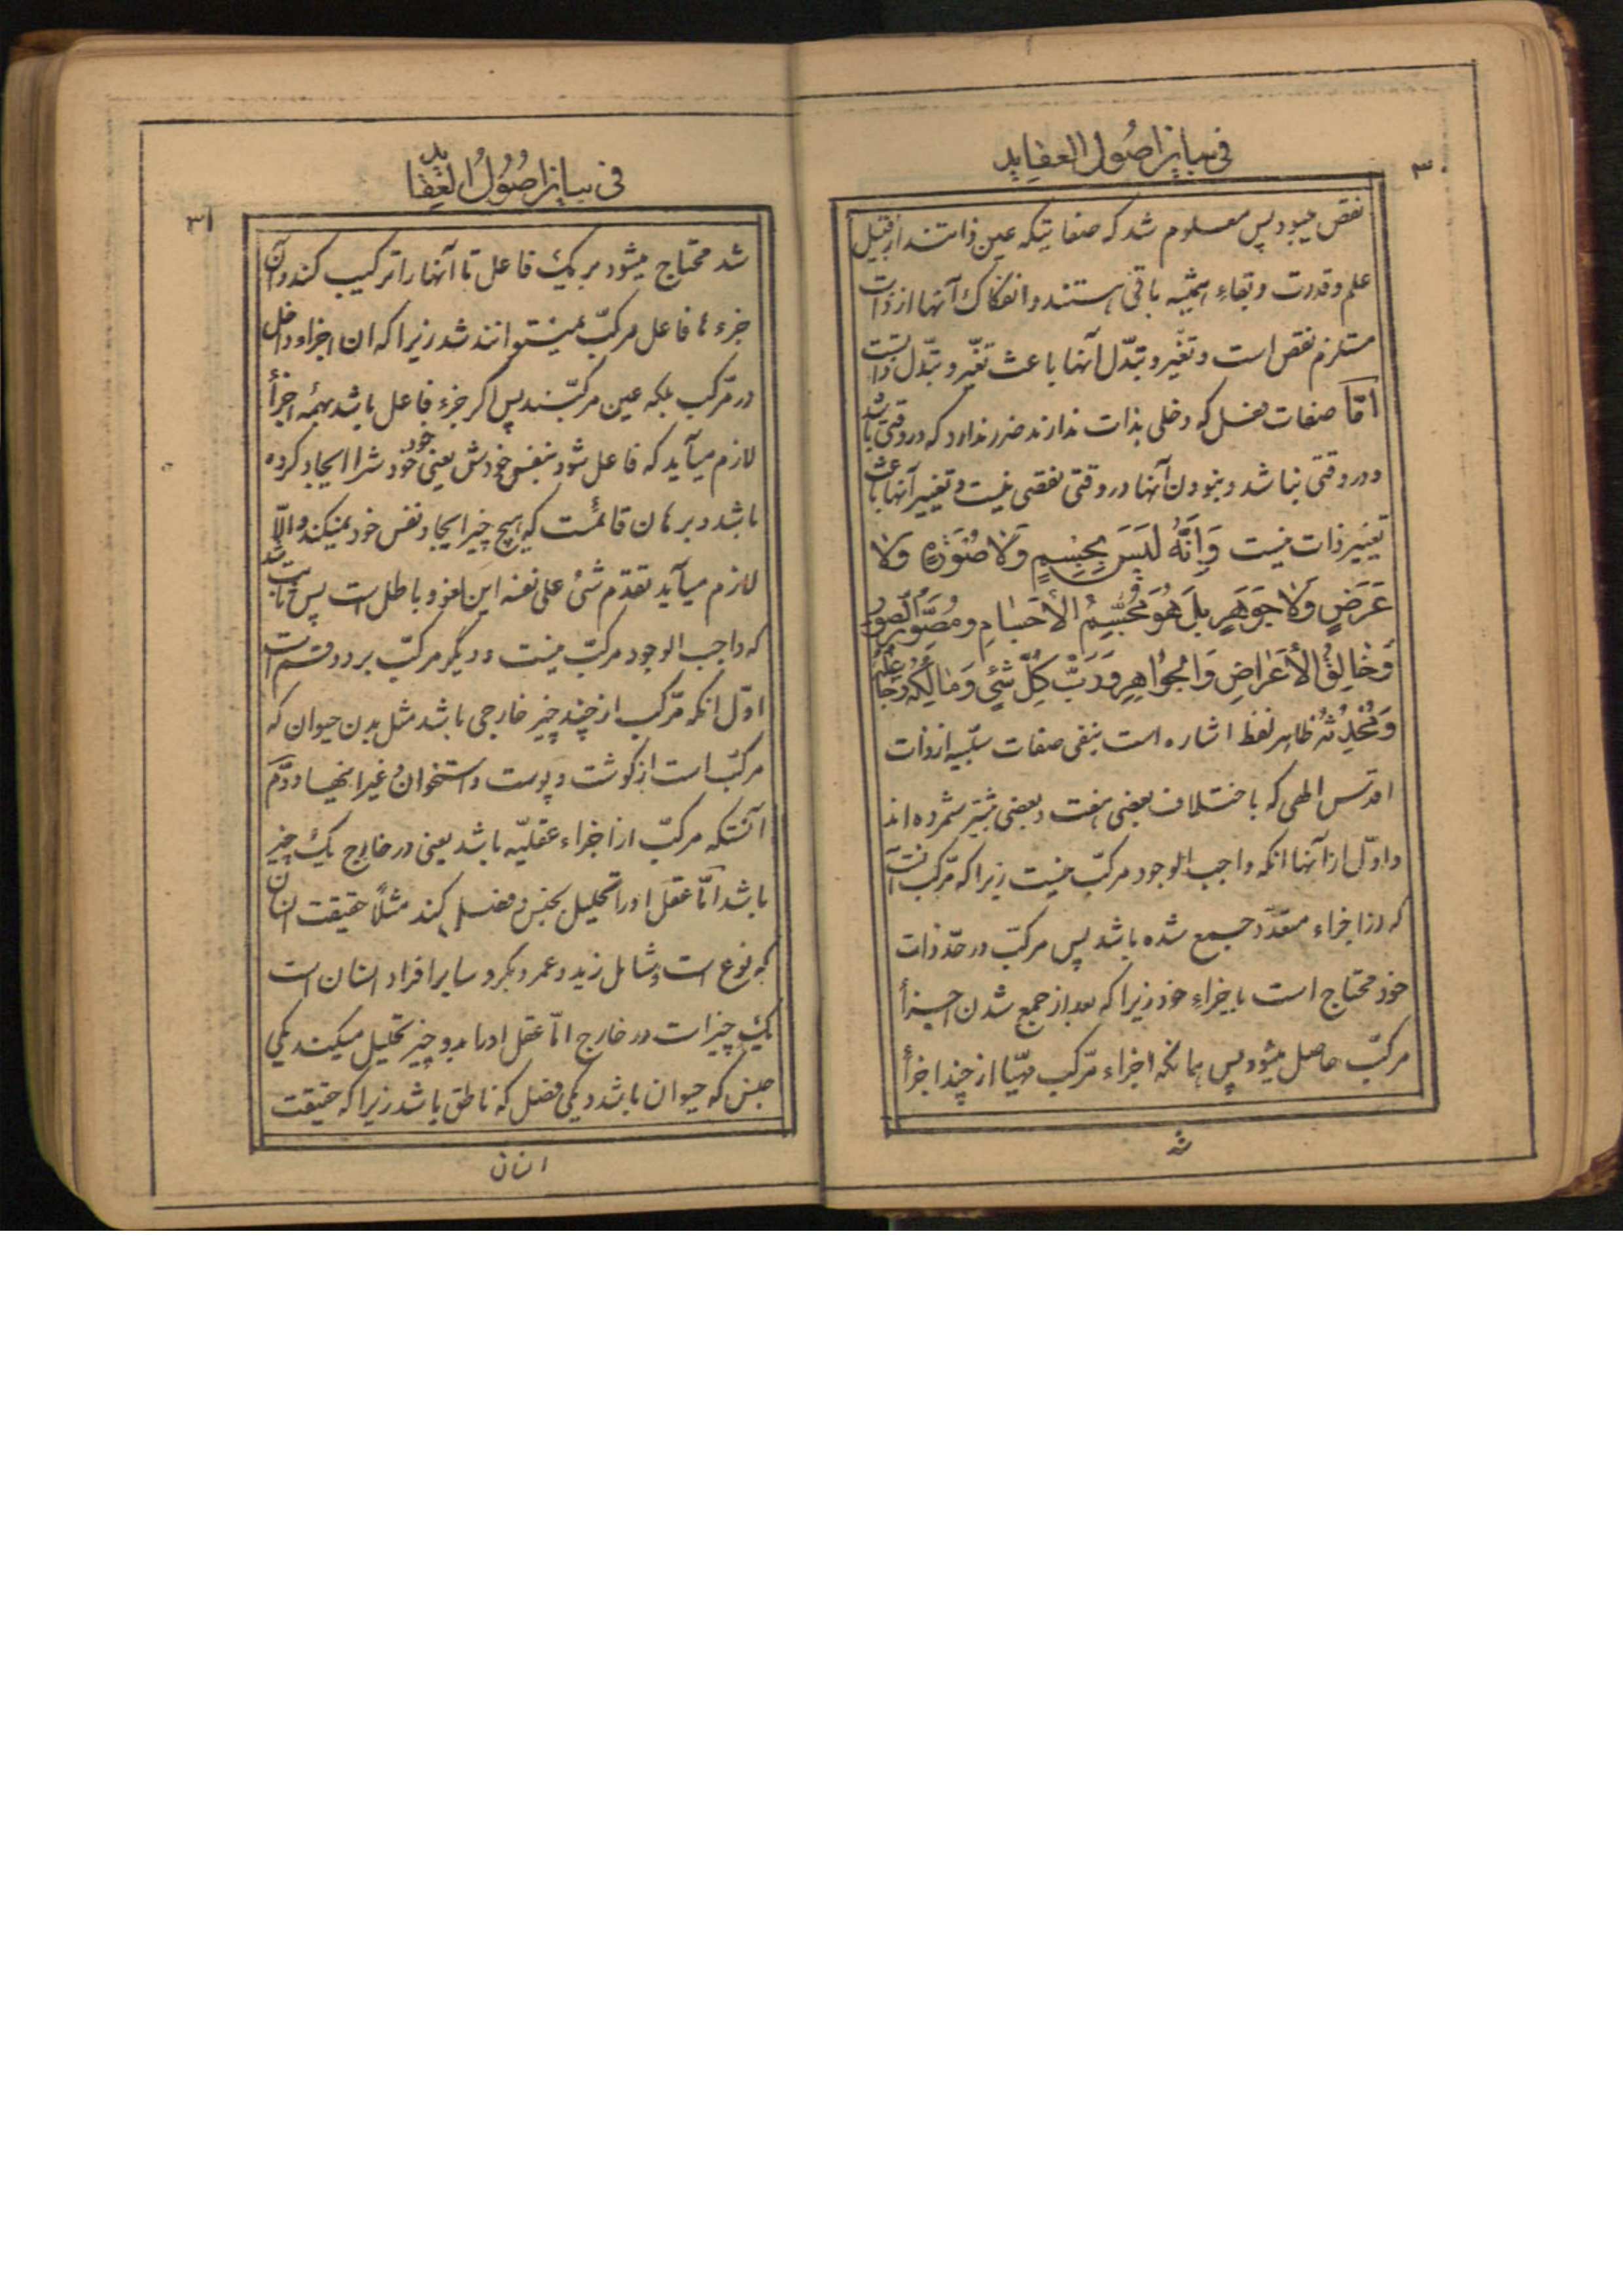 ۳۰
فی بیان اصول العقاید
نقص میبود پس معلوم شد که صفاتیکه عین ذاتند از قبیل
علم و قدرت و بقاء همیشه باقی هستند و انفکاک آنها از ذات
مستلزم نقص است و تغیّر و تبدّل آنها باعث تغیّر و تبدّل ذاتست
امّا صفات فعل که دخلی بذات ندارند ضرر ندارد که در وقتی باشد
و در وقتی نباشد و نبودن آنها در وقتی نقصی نیست و تغییر آنها باعث
تغییر ذات نیست وَاَنَّهُ لَیْسَ بِجِسْمٍ وَلَا صُوْرَةٍ وَلَا
عَرَضٍ وَلَا جَوْهَرٍ بَلْ هُوَ مُجَسِّمُ الْأَجْسَامِ وَ مُصَوِّرُ الصُّوَرِ
وَخَالِقُ الْأَعْرَاضِ وَالْجَوَاهِرِ وَرَبُّ کُلِّ شَئٍ وَمَالِکُهُ وَجَاعِلُهُ
وَمُحْدِثُهُ ظاهر لفظ اشاره است بنفی صفات سلبیه از ذات
اقدس الهی که باختلاف بعضی هفت و بعضی بیشتر شمرده اند
و اوّل از آنها انکه واجب الوجود مرکبّ نیست زیرا که مرکّب آنست
که از اجزاء متعدّد جمع شده باشد پس مرکبّ در حدّ ذات
خود محتاج است باجزاء خود زیرا که بعد از جمع شدن اجزأ
مرکبّ حاصل میشود پس همانکه اجزاء مرکّب مهیّا از چند اجزأ
شد
۳۱
فی بیان اصول العقاید
شد محتاج میشود بر یک فاعل تا آنها را ترکیب کند و آن
جزء ها فاعل مرکبّ نمیتوانند شد زیرا که ان اجزاء داخل
در مرّکب بلکه عین مرکبّند پس اکر جزء فاعل باشد بهمۀ اجزأ
لازم میآید که فاعل شود بنفس خودش یعنی خود خودشرا ایجاد کرده
باشد و برهان قائمست که هیچ چیز ایجاد نفس خود نمیکند والّا
لازم میآید تقدّم شئ علی نفسه این لغو و باطل است پس ثابت شد
که واجب الوجود مرکبّ نیست و دیگر مرکبّ بر دو قسم است
اوّل انکه مرّکب از چند چیز خارجی باشد مثل بدن حیوان که
مرکبّ است از کوشت و پوست و استخوان و غیر اینها و دوّم
آنستکه مرکبّ از اجزاء عقلیّه باشد یعنی در خارج یک چیز
باشد امّا عقل او را تحلیل بجنس و فصل کند مثلاً حقیقت انسان
که نوع است و شامل زید و عمر و بکر و سایر افراد انسان است
یک چیز است در خارج امّا عقل او را بدو چیز تحلیل میکند یکی
جنس که حیوان باشد و یکی فصل که ناطق باشد زیرا که حقیقت
انسان